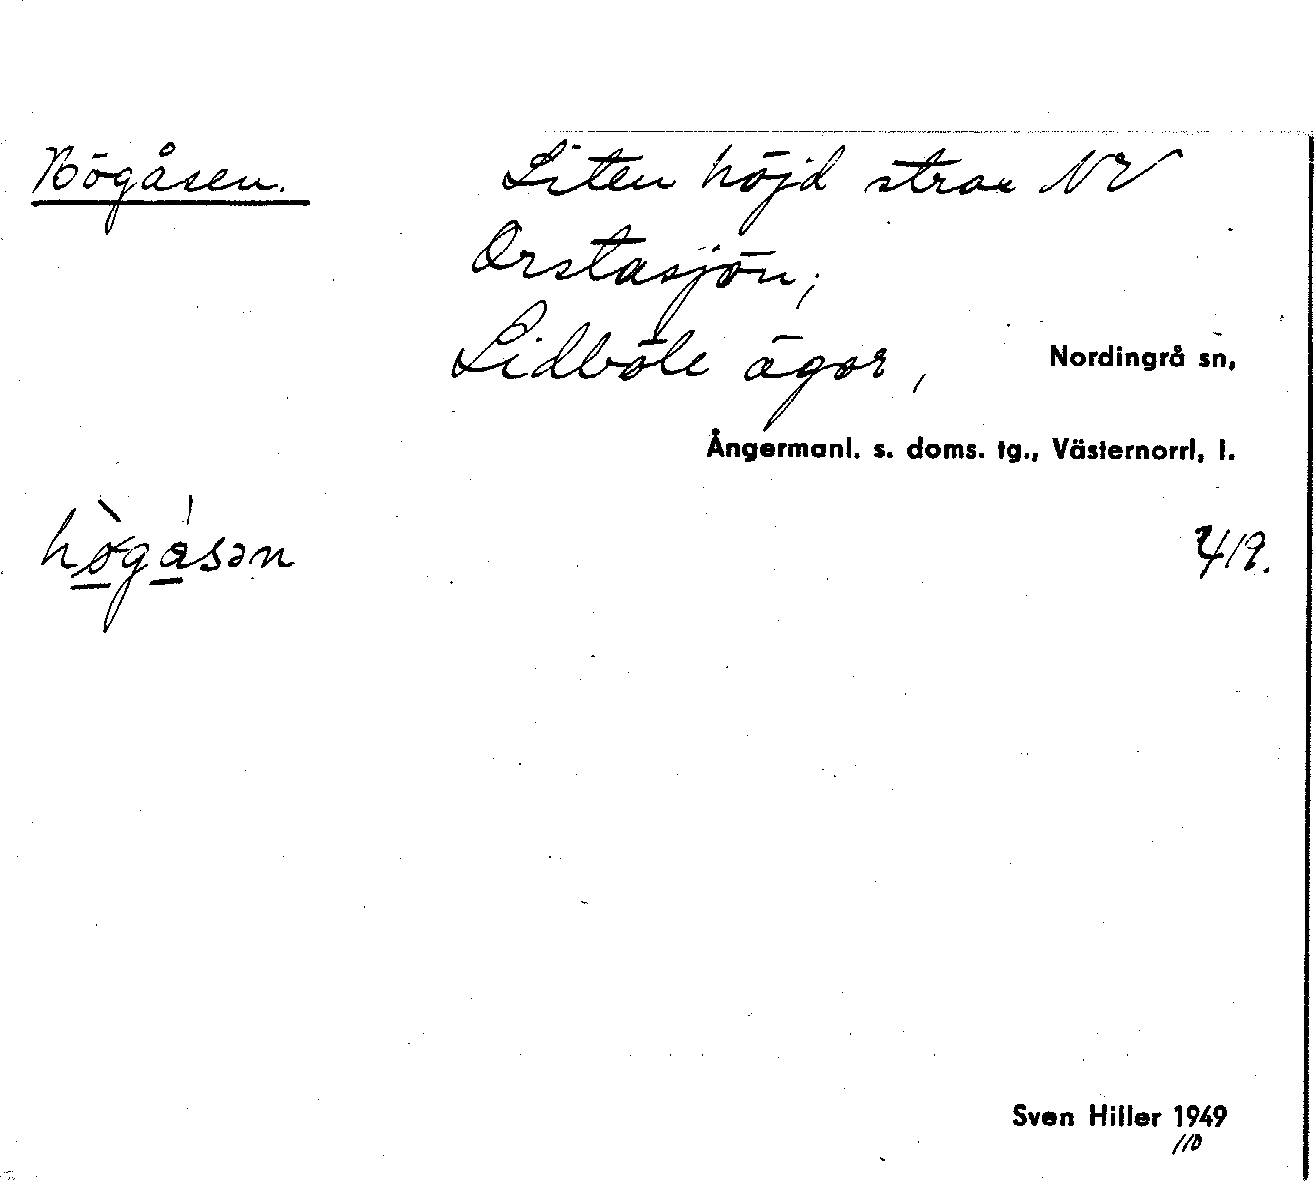 Högåsen.
Liten höjd strax NV
Orstasjön;
Lidböle ägor,
Nordingrå sn,
Ångermanl. s. doms. tg., Västernorrl, l.
hògåsən
419.
Sven Hiller 1949
110